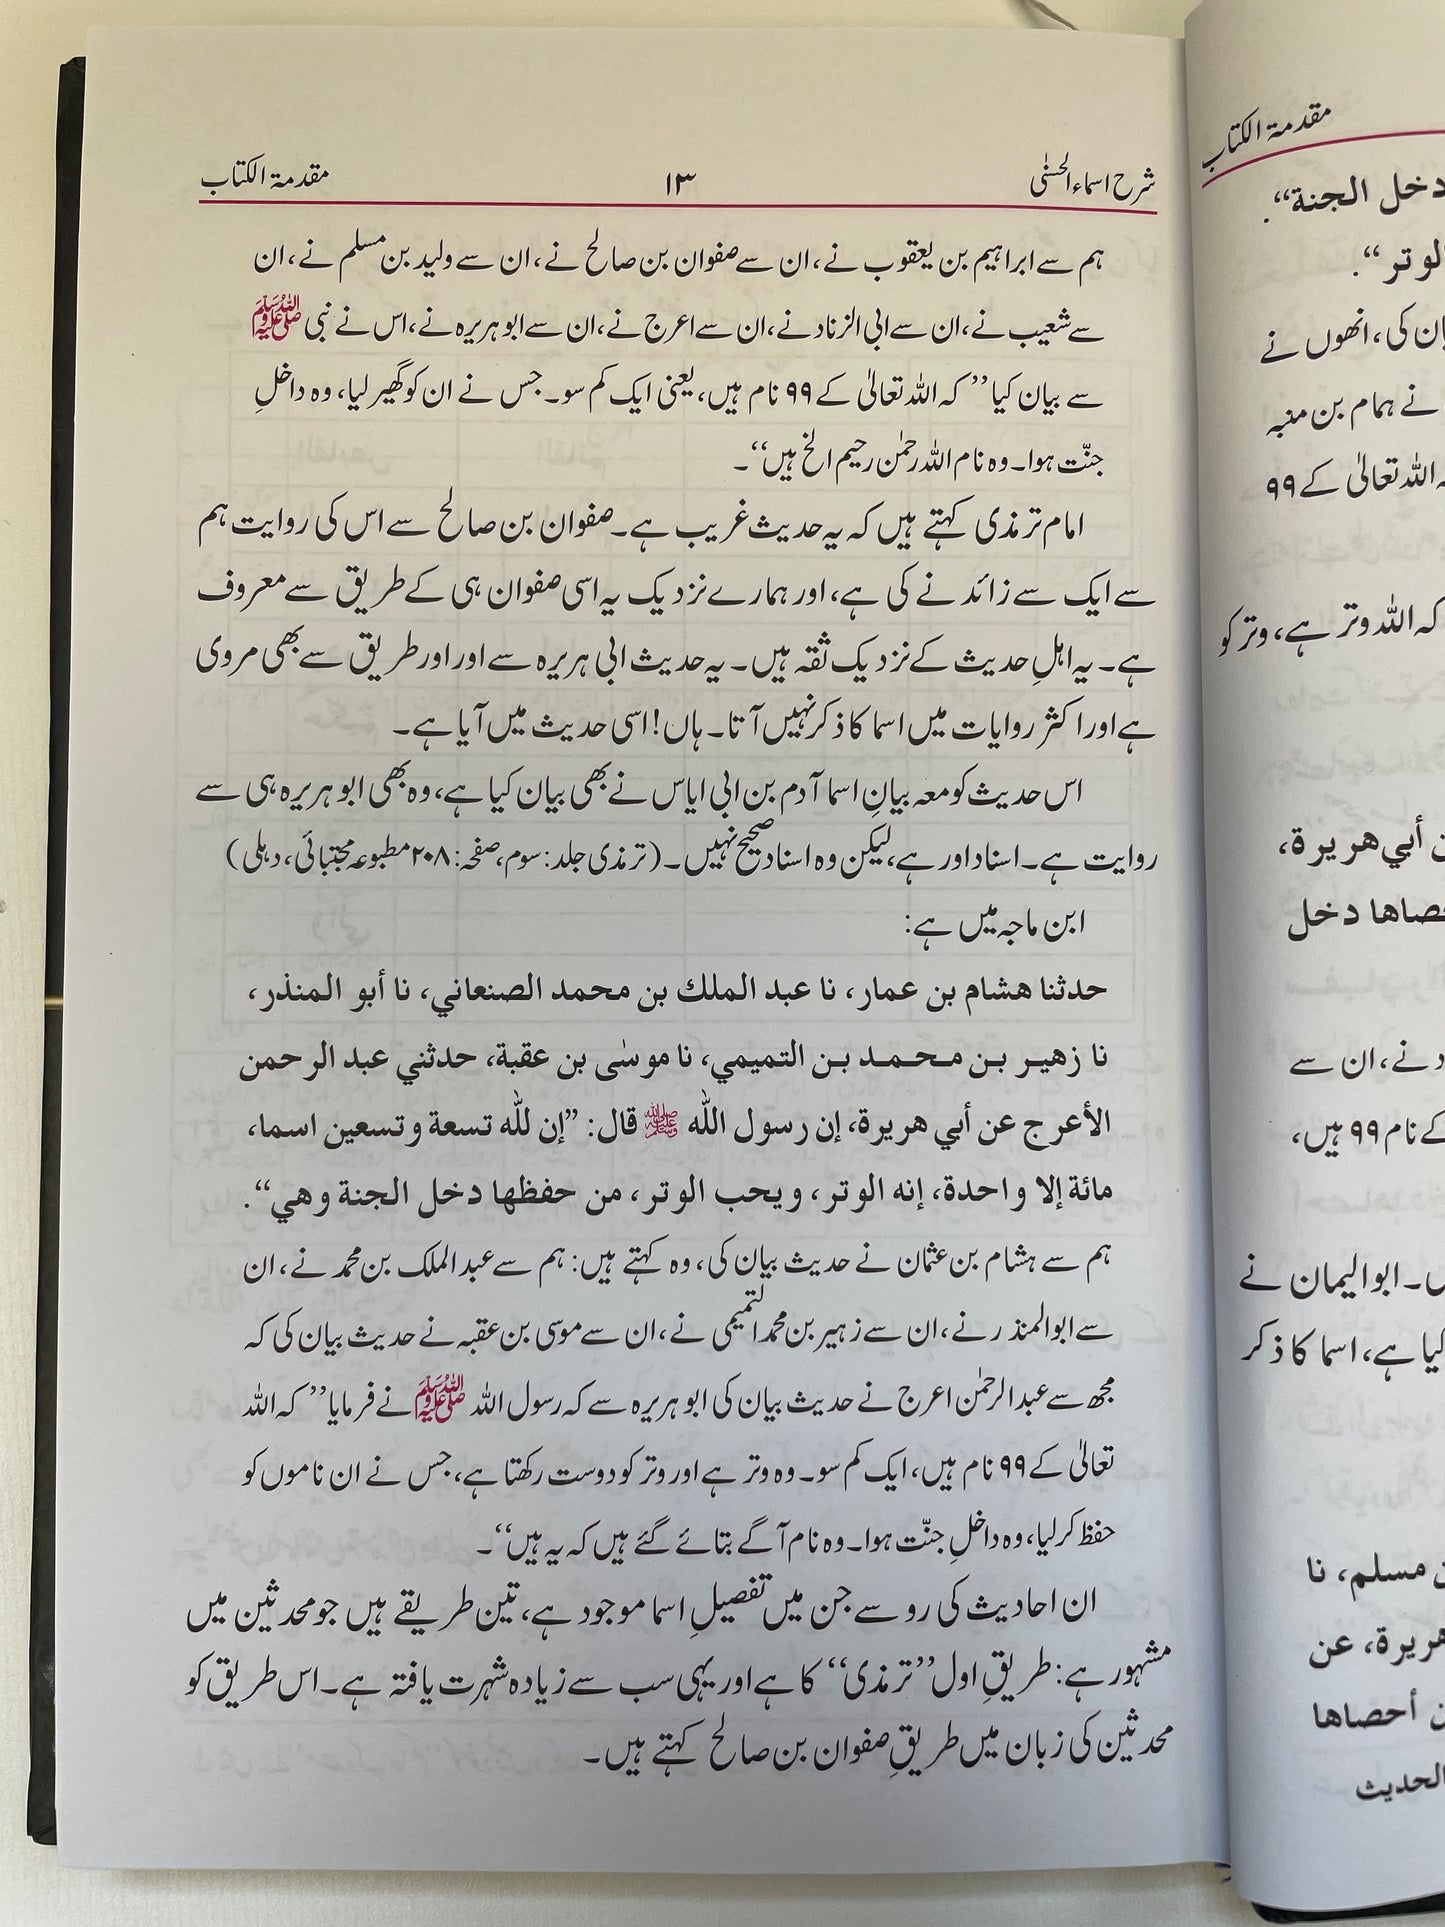 شرح اسماء الحسنٰی ۱۳ مقدمۃ الکتاب
ہم سے ابراہیم بن یعقوب نے، ان سے صفوان بن صالح نے، ان سے ولید بن مسلم نے، ان
سے شعیب نے، ان سے ابی الزناد نے، ان سے اعرج نے، ان سے ابو ہریرہ نے، اس نے نبی ﷺ
سے بیان کیا ’’کہ اللہ تعالیٰ کے ۹۹ نام ہیں، یعنی ایک کم سو۔ جس نے ان کو گھیر لیا، وہ داخلِ
جنّت ہوا۔ وہ نام اللہ رحمٰن رحیم الخ ہیں‘‘۔
امام ترمذی کہتے ہیں کہ یہ حدیث غریب ہے۔ صفوان بن صالح سے اس کی روایت ہم
سے ایک سے زائد نے کی ہے، اور ہمارے نزدیک یہ اسی صفوان ہی کے طریق سے معروف
ہے۔ یہ اہلِ حدیث کے نزدیک ثقہ ہیں۔ یہ حدیث ابی ہریرہ سے اور اور طریق سے بھی مروی
ہے اور اکثر روایات میں اسما کا ذکر نہیں آتا۔ ہاں! اسی حدیث میں آیا ہے۔
اس حدیث کو معہ بیانِ اسما آدم بن ابی ایاس نے بھی بیان کیا ہے، وہ بھی ابو ہریرہ ہی سے
روایت ہے۔ اسناد اور ہے، لیکن وہ اسناد صحیح نہیں۔ (ترمذی جلد: سوم، صفحہ: ۲۰۸ مطبوعہ مجتبائی، دہلی)
ابن ماجہ میں ہے:
حدثنا هشام بن عمار، نا عبد الملك بن محمد الصنعاني، نا أبو المنذر،
نا زهير بن محمد بن التميمي، نا موسٰى بن عقبة، حدثني عبد الرحمن
الأعرج عن أبي هريرة، إن رسول اللّٰه ﷺ قال: ’’إن للّٰه تسعة وتسعين اسما،
مائة إلا واحدة، إنه الوتر، ويحب الوتر، من حفظها دخل الجنة وهي‘‘.
ہم سے ہشام بن عثمان نے حدیث بیان کی، وہ کہتے ہیں: ہم سے عبد الملک بن محمد نے، ان
سے ابوالمنذر نے، ان سے زہیر بن محمد التمیمی نے، ان سے موسی بن عقبہ نے حدیث بیان کی کہ
مجھ سے عبدالرحمٰن اعرج نے حدیث بیان کی ابو ہریرہ سے کہ رسول اللہ ﷺ نے فرمایا ’’کہ اللہ
تعالیٰ کے ۹۹ نام ہیں، ایک کم سو۔ وہ وتر ہے اور وتر کو دوست رکھتا ہے، جس نے ان ناموں کو
حفظ کر لیا، وہ داخلِ جنّت ہوا۔ وہ نام آگے بتائے گئے ہیں کہ یہ ہیں‘‘۔
ان احادیث کی رو سے جن میں تفصیلِ اسما موجود ہے، تین طریقے ہیں جو محدثین میں
مشہور ہے: طریقِ اول ’’ترمذی‘‘ کا ہے اور یہی سب سے زیادہ شہرت یافتہ ہے۔ اس طریق کو
محدثین کی زبان میں طریقِ صفوان بن صالح کہتے ہیں۔
مقدمۃ الکتاب
دخل الجنة‘‘.
الوتر‘‘.
کی، انھوں نے
نے ہمام بن منبہ
اللہ تعالیٰ کے ۹۹
کہ اللہ وتر ہے، وتر کو
أبي هريرة،
دخل
نے، ان سے
کے نام ۹۹ ہیں،
ابوالیمان نے
کیا ہے، اسما کا ذکر
مسلم، نا
هريرة، عن
أحصاها
الحديث